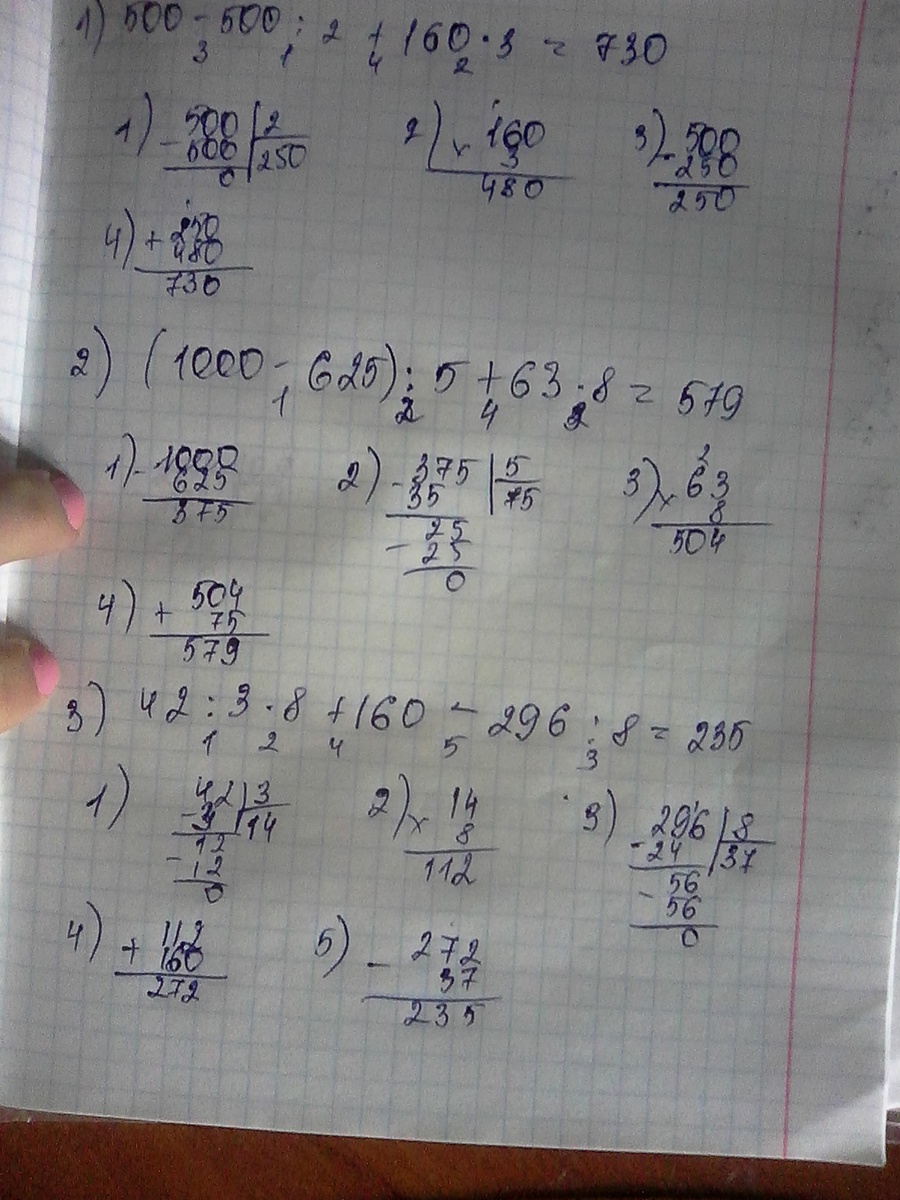 1) 500 - 500 : 2 + 160 · 3 = 730
3 1 4 2
1) - 500 | 2
500 | 250
0
2) × 160
3
480
3) - 500
250
250
4) + 250
480
730
2) (1000 - 625) : 5 + 63 · 8 = 579
1 2 4
1) - 1000
625
375
2) - 375 | 5
35 | 75
- 25
25
0
3) × 63
8
504
4) + 504
75
579
3) 42 : 3 · 8 + 160 - 296 : 8 = 235
1 2 4 5 3
1) - 42 | 3
3 | 14
- 12
12
0
2) × 14
8
112
3) - 296 | 8
24 | 37
- 56
56
0
4) + 112
160
272
5) - 272
37
235